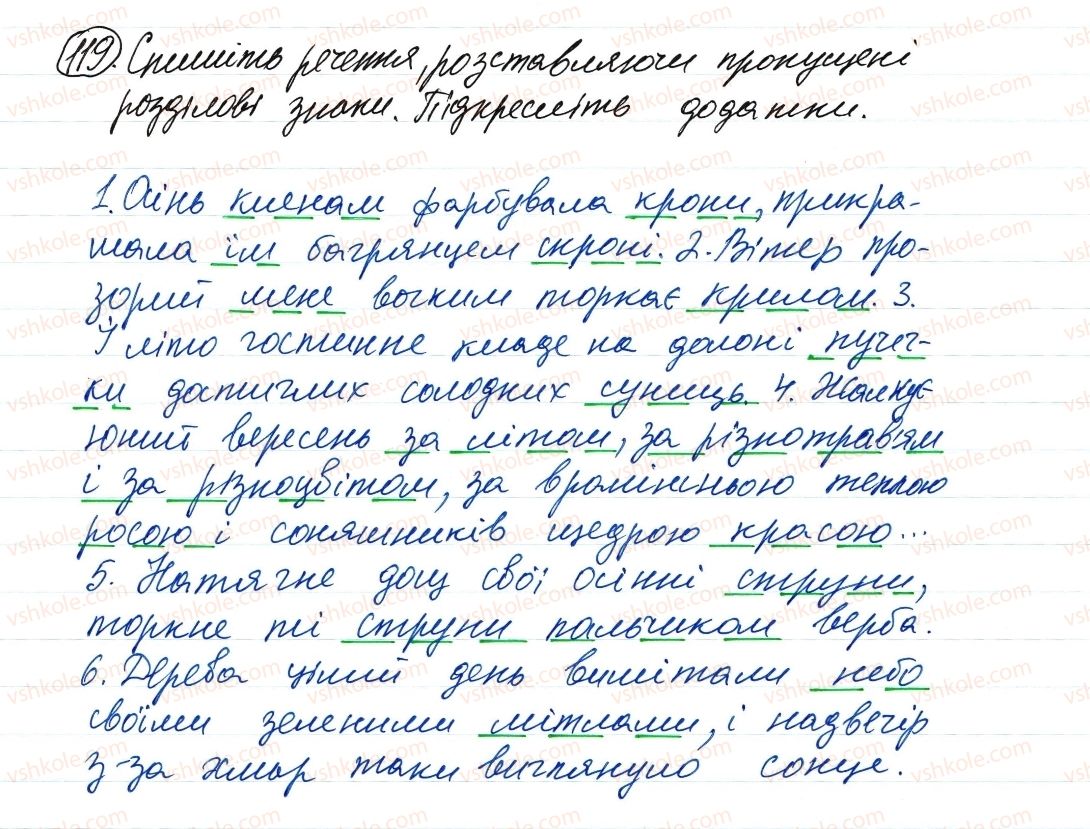 119. Спишіть речення, розставляючи пропущені
розділові знаки. Підкресліть додатки.
1. Осінь кленам фарбувала крони, прикра-
шала їм багрянцем скроні. 2. Вітер про-
зорий мене вогким торкає крилом. 3.
І літо гостинне кладе на долоні пучеч-
ки достиглих солодких суниць. 4. Жалкує
юний вересень за літом, за різнотрав'ям
і за різноцвітом, за вранішньою теплою
росою і соняшників щедрою красою...
5. Натягне дощ свої осінні струни,
торкне ті струни пальчиком верба.
6. Дерева цілий день вимітали небо
своїми зеленими мітлами, і надвечір
з-за хмар таки виглянуло сонце.